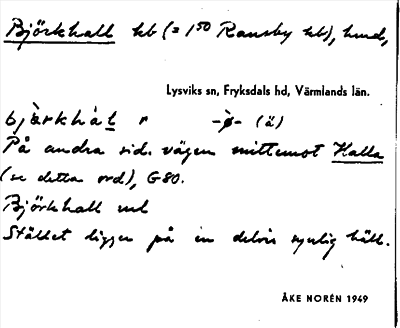 Björkhall hb (= 1⁵⁰ Ransby hb), hmd,
Lysviks sn, Fryksdals hd, Värmlands län.
bjàrkhàl r -ø̀- (ä)
På andra sid. vägen mittemot Kalla
(se detta ord), G80.
Björkhall
Stället ligger på en delvis synlig häll.
ÅKE NORÉN 1949